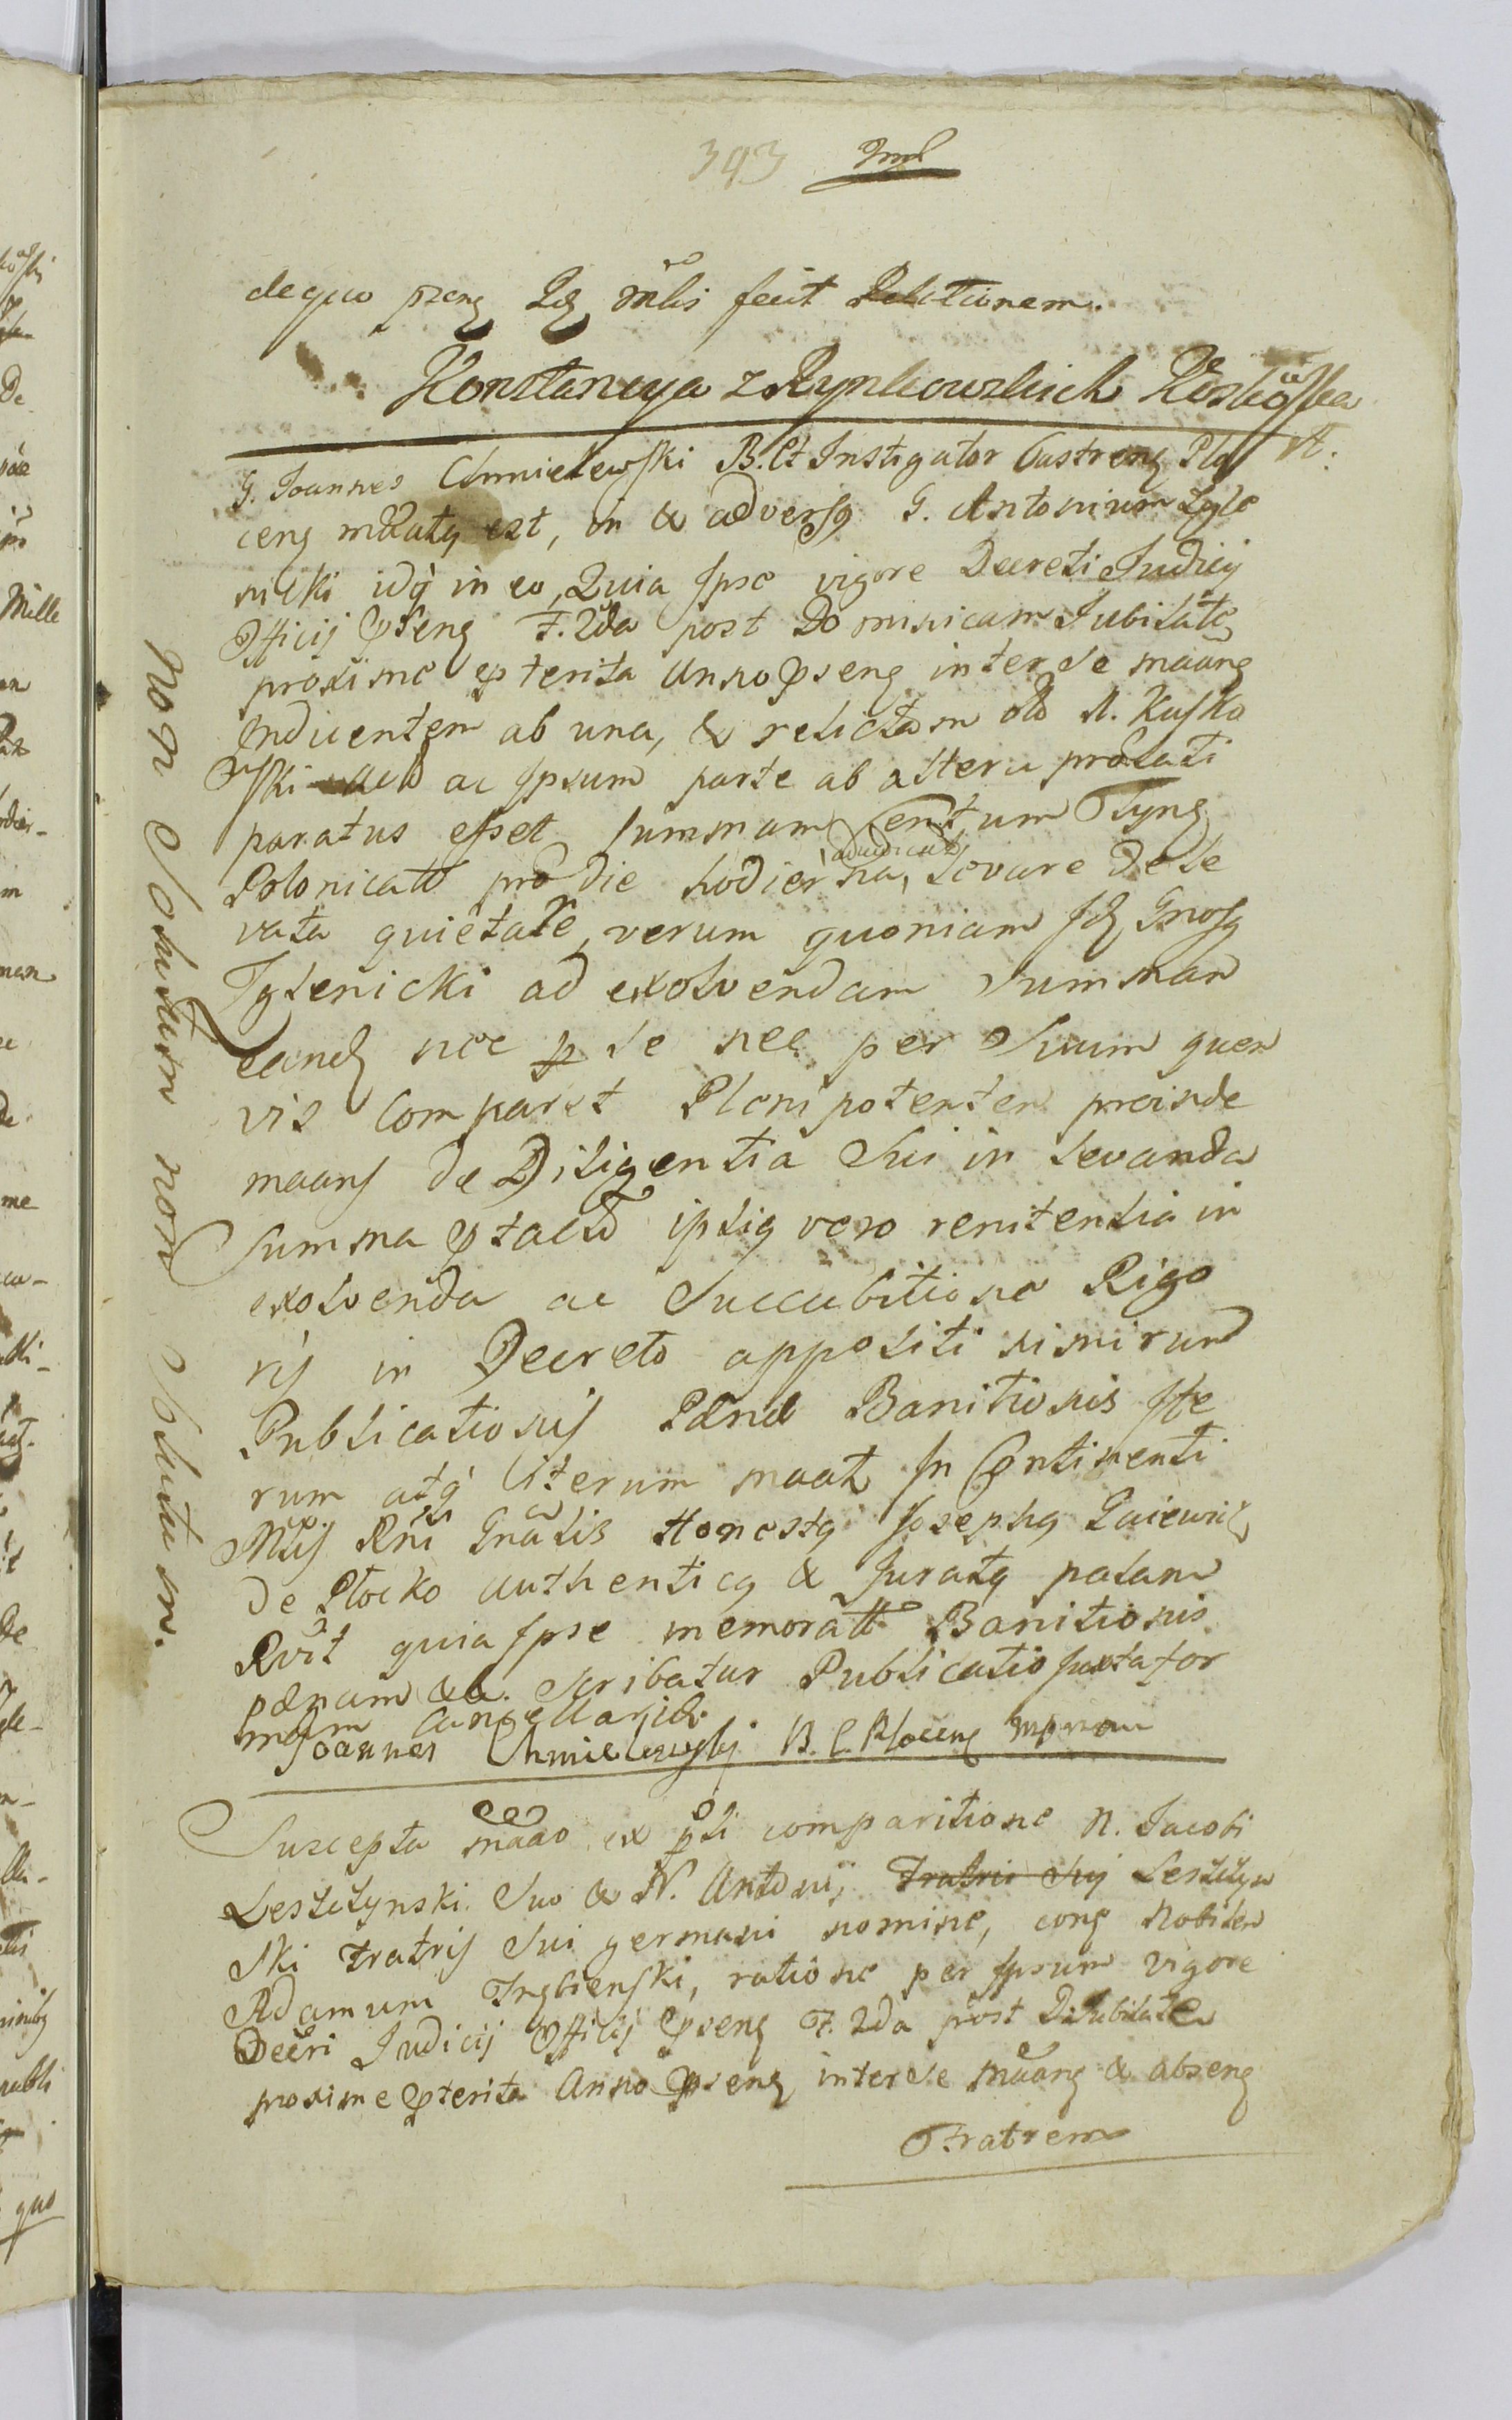 393
dequo pzens Idz mlis fecit Relationem.
Konstancya z Rynkowskich Kosköska
G. Joannes Chmielewski B. Et Instigator Castrens Plo
cens mtatq est, in & adversq G. Antonium Zgle
nicki idq in eo, Quia Ipse vigore Decreti Judicij
Officij Pseng F. 2da post Dominicam Jubilate
proxime pterita Anno pseng inter se maang
Inducentem ab una, & relictam olo M. Kuska
ski ac Ipsum parte ab altera prolati
paratus esset summam Centum Flyng
Polonicatt pro die hodierna, levare dele
vata quietare, verum quoniam Idz Gnosq
Zglenicki ad exolvendam Summam
eandz nec p se nec per Suum quem
vis Comparet Plenipotentem proinde
maans de Diligentia Sui in levanda
Summa ptactt ipsiq vero renitentia in
exolvenda ac Succubitione Rigo
ris in Decreto appositi nimirum
Publicationis Pænæ Banitionis Ite
rum atq iterum maat In Continenti
Mlis Rni Gnalis Honestq Josephq Gaiewski
de Plocko authenticq & Juratq palam
Rvit quia Ipse memoratt Banitionis
pænam &a. Scribatur Publicatio juxta for
mam Cancellariæ
Joannes Chmielewski B. C. Ploceng mpria
Suscepta maao ex psli comparitione N. Jacobi
Leszczynski Suo & N. Antonij Fratris Sui Leszczyn
ski Fratris Sui germani nomine, cong Nobilem
Adamum Trębienski, ratione per Ipsum vigore
Decri Judicij Officij pseng F. 2da post D. Jubilate
proxime pterita Anno pseng inter se maang & abseng
Fratrem
non Solutum non Solutum.